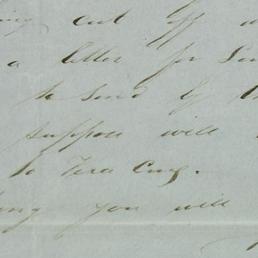 ing cut off
a letter for
to send by
suppose will
to Vera Cruz.
you will